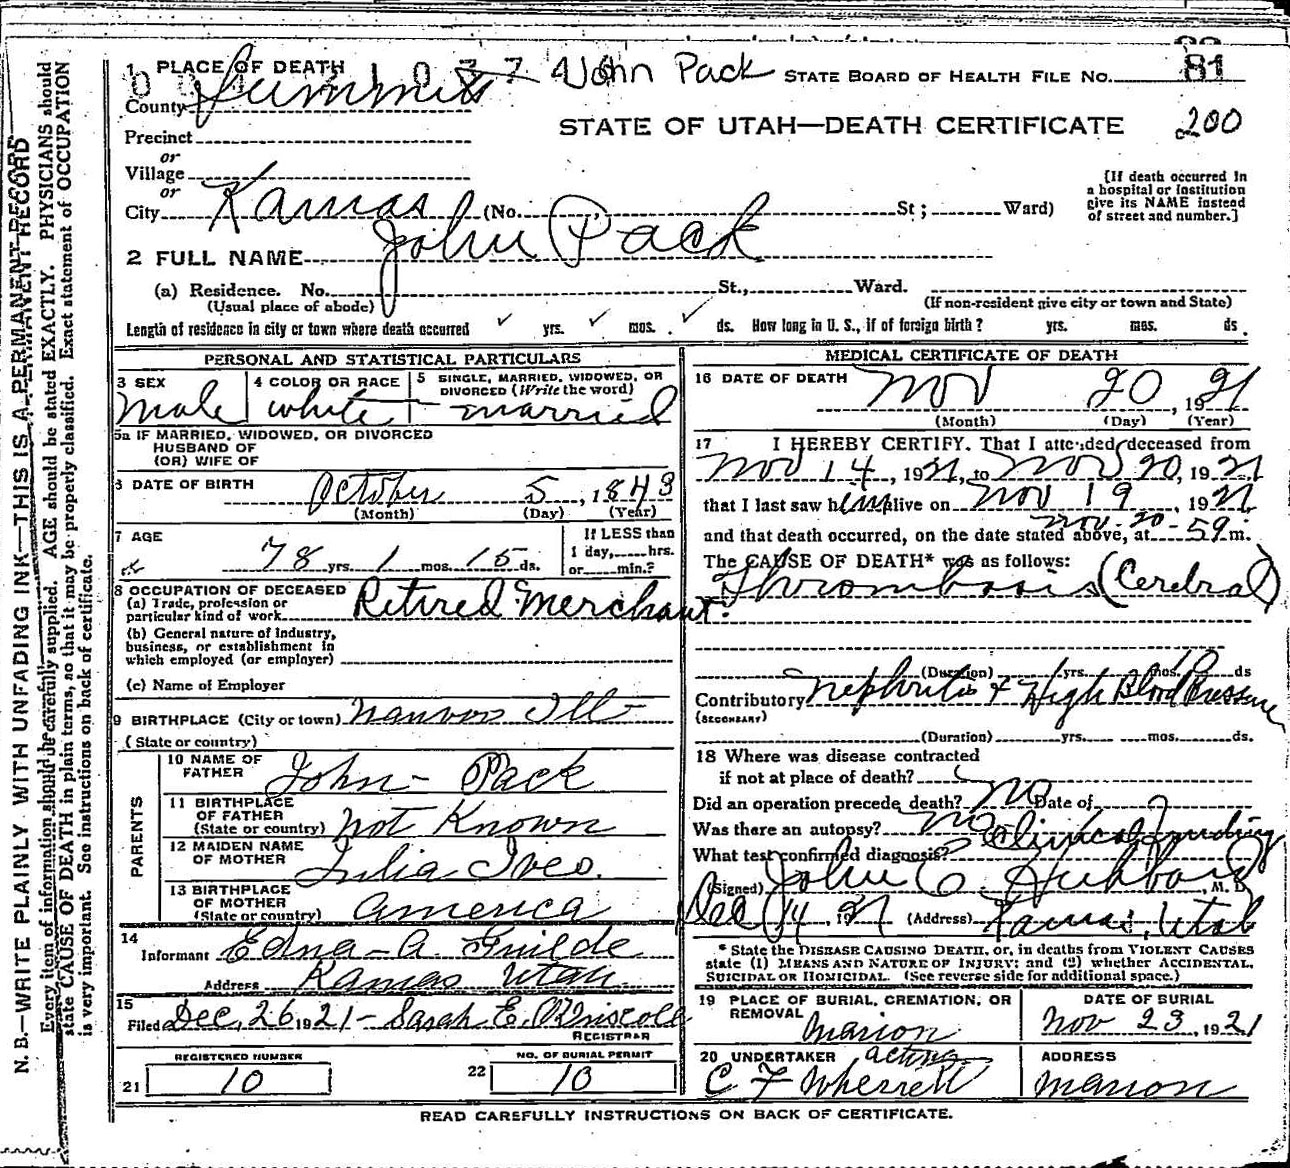 1 PLACE OF DEATH John Pack STATE BOARD OF HEALTH FILE NO. 81
County Summit
STATE OF UTAH—DEATH CERTIFICATE 200
Precinct
or
Village
or
City Kamas (No. St; Ward)
[If death occurred in
a hospital or institution
give its NAME instead
of street and number.]
2 FULL NAME John Pack
(a) Residence. No. St., Ward.
(Usual place of abode) (If non-resident give city or town and State)
Length of residence in city or town where death occurred yrs. mos. ds. How long in U. S., if of foreign birth? yrs. mos. ds.
PERSONAL AND STATISTICAL PARTICULARS
3 SEX Male
4 COLOR OR RACE white
5 SINGLE, MARRIED, WIDOWED, OR
DIVORCED (Write the word)
married
5a IF MARRIED, WIDOWED, OR DIVORCED
HUSBAND OF
(OR) WIFE OF
6 DATE OF BIRTH October 5, 1843
(Month) (Day) (Year)
7 AGE
78 yrs 1 mos. 15 ds.
If LESS than
1 day, hrs.
or min.?
8 OCCUPATION OF DECEASED
(a) Trade, profession or
particular kind of work Retired Merchant.
(b) General nature of industry,
business, or establishment in
which employed (or employer)
(c) Name of Employer
9 BIRTHPLACE (City or town) Nauvoo Ill
(State or country)
PARENTS
10 NAME OF
FATHER John - Pack
11 BIRTHPLACE
OF FATHER
(State or country) Not Known
12 MAIDEN NAME
OF MOTHER Julia Ives.
13 BIRTHPLACE
OF MOTHER
(State or country) America
14
Informant Edna - A.
Address Kamas Utah
15
Filed Dec, 26 1921 - Sarah E.
REGISTRAR
REGISTERED NUMBER
21 10
NO. OF BURIAL PERMIT
22 10
MEDICAL CERTIFICATE OF DEATH
16 DATE OF DEATH Nov 20, 1921
(Month) (Day) (Year)
17 I HEREBY CERTIFY. That I attended deceased from
Nov 14, 1921, to Nov 20, 1921
that I last saw him alive on Nov 19, 1921
and that death occurred, on the date stated above, at Nov-20-59 m.
The CAUSE OF DEATH* was as follows:
Thrombosis (Cerebral)
(Duration) yrs. mos. 10 ds
Contributory Nephritis & High Blood Pressure
(SECONDARY)
(Duration) yrs. mos. ds.
18 Where was disease contracted
if not at place of death?
Did an operation precede death? No Date of
Was there an autopsy? No
What test confirmed diagnosis? Clinical
(Signed) John C, M. D
Dec 14, 1921 (Address) Kamas, Utah
* State the DISEASE CAUSING DEATH, or, in deaths from VIOLENT CAUSES
state (1) MEANS AND NATURE OF INJURY; and (2) whether ACCIDENTAL,
SUICIDAL, OR HOMICIDAL. (See reverse side for additional space.)
19 PLACE OF BURIAL, CREMATION, OR
REMOVAL Marion
DATE OF BURIAL
Nov 23, 1921
20 UNDERTAKER acting
C F Wherrett
ADDRESS
Marion
READ CAREFULLY INSTRUCTIONS ON BACK OF CERTIFICATE.
N. B.—WRITE PLAINLY WITH UNFADING INK—THIS IS A PERMANENT RECORD
Every item of information should be carefully supplied. AGE should be stated EXACTLY. PHYSICIANS should
state CAUSE OF DEATH in plain terms, so that it may be properly classified. Exact statement of OCCUPATION
is very important. See instructions on back of certificate.